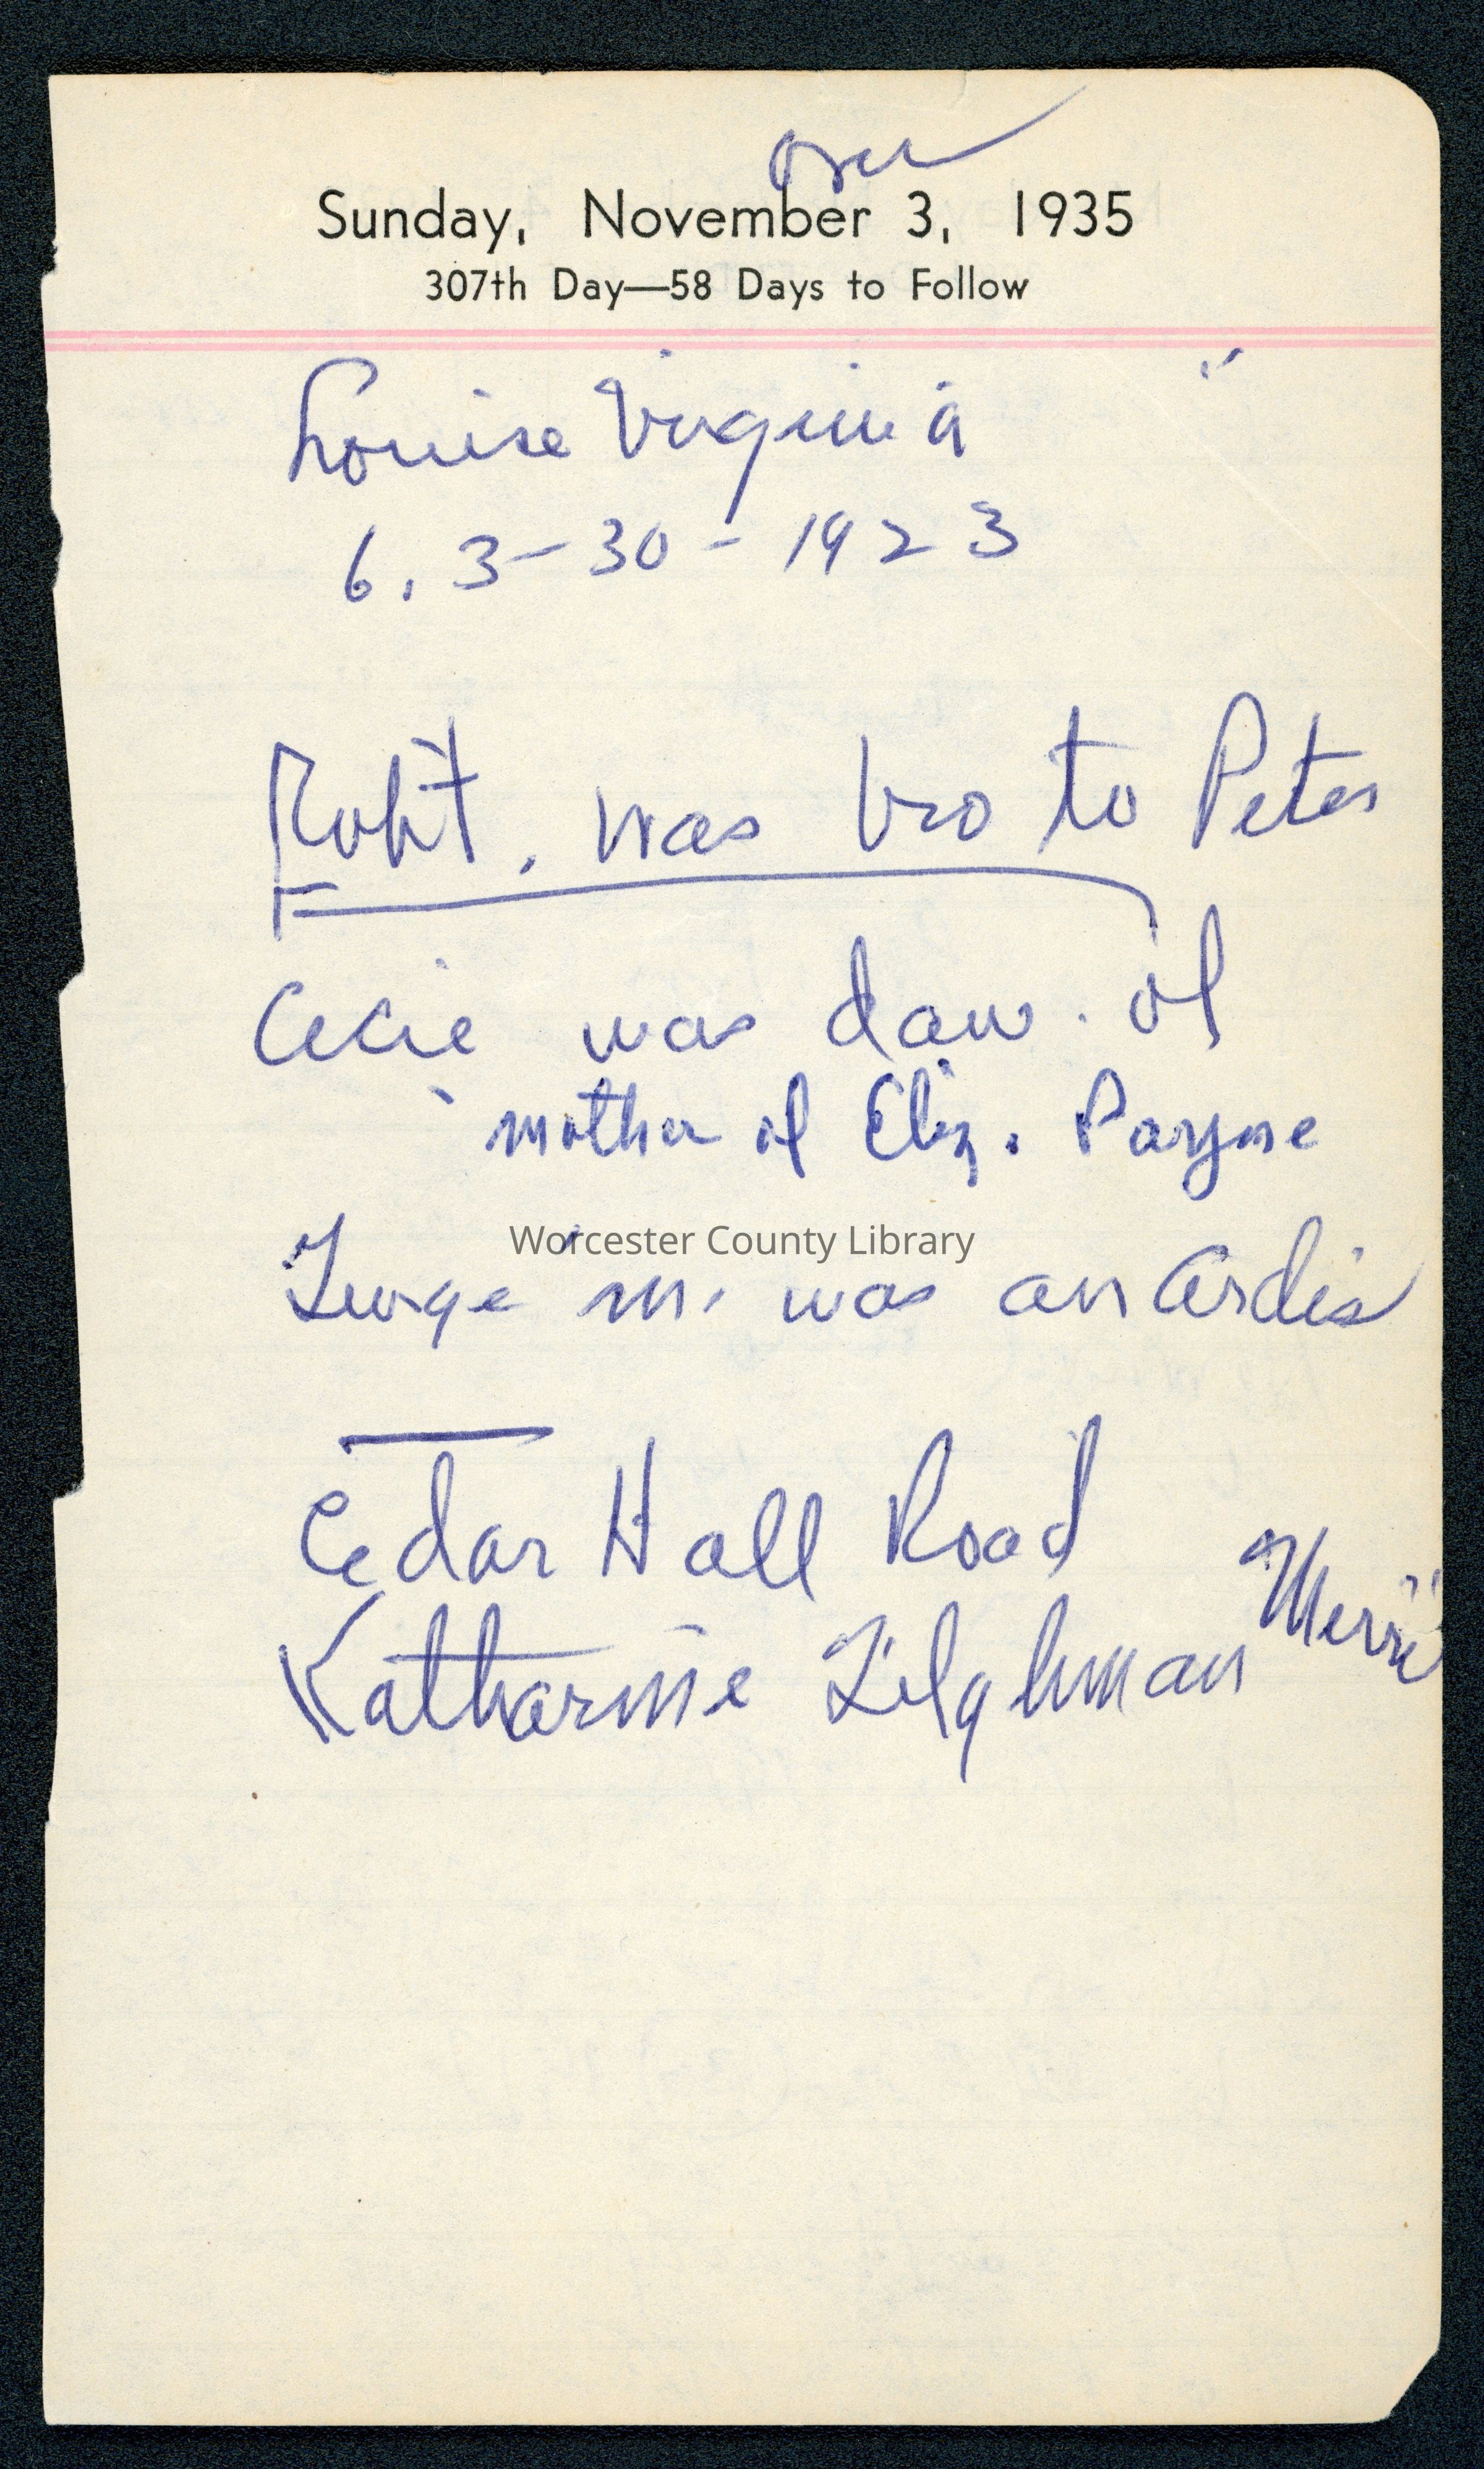 over
Sunday, November 3, 1935
307th Day—58 Days to Follow
Louise Virginia "
b. 3-30-1923
Robt. was bro to Peter
Cecie was daw. of
mother of Eliz. Payne
George m. was an Ardis
Worcester County Library
Cedar Hall Road
Katharine Tilghman Merrill